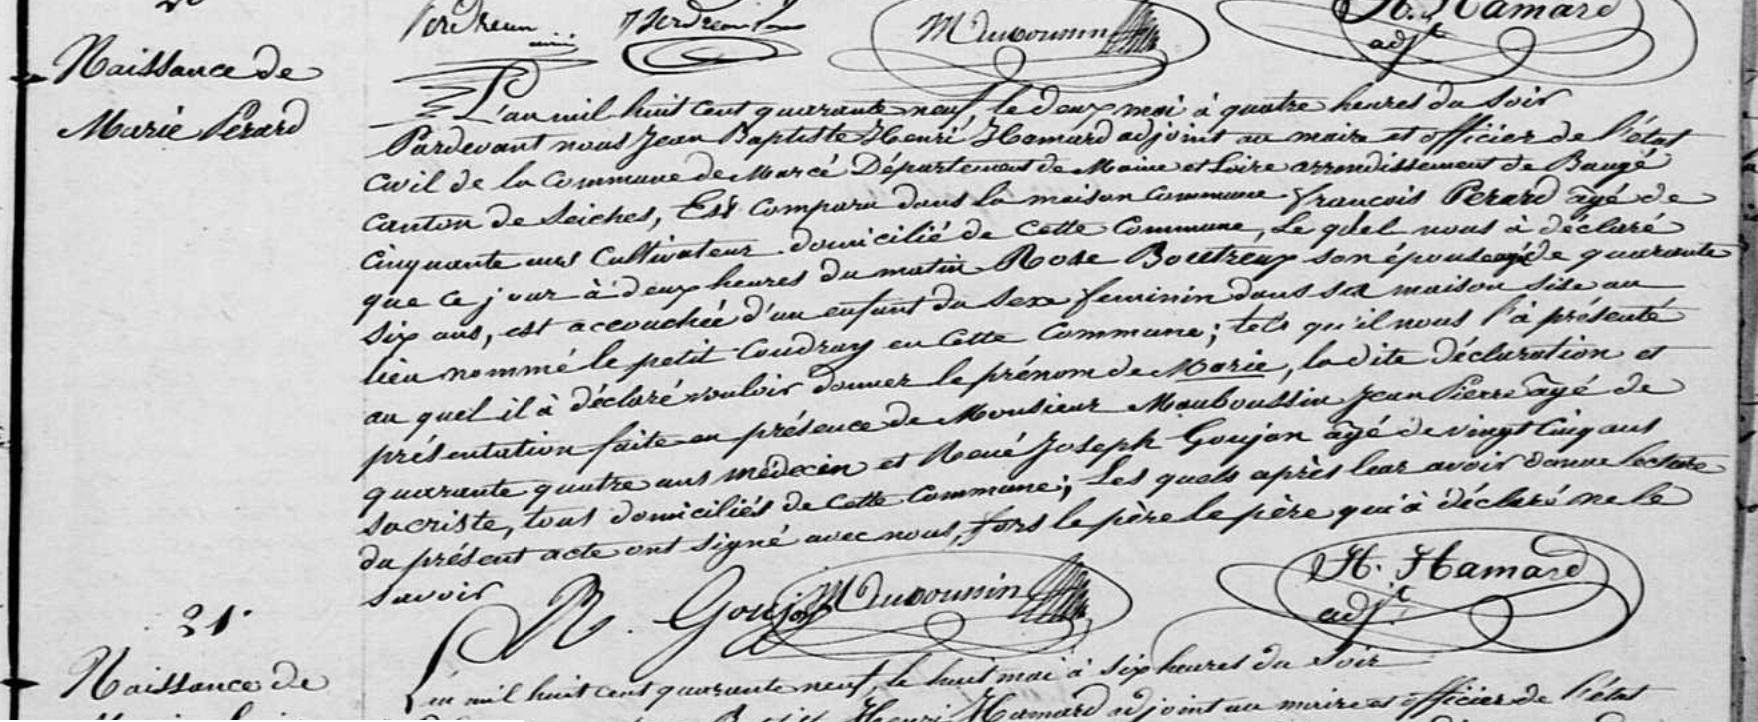 Naissance de
Marie Perard
Mauboussin
H. Hamard
adjt
L'an mil huit cent quarante neuf, le deux mai à quatre heures du soir
Pardevant nous Jean Baptiste Henri Hamard adjoint au maire et officier de l'état
civil de la Commune de Marcé Département de Maine et Loire arrondissement de Baugé
Canton de Seiches, Est comparu dans la maison Commune françois Perard âgé de
Cinquante ans Cultivateur domicilié de cette Commune, Le quel nous à déclaré
que ce jour à deux heures du matin Rose Boutreux son épouse agé de quarante
six ans, est accouchée d'un enfant du sexe feminin dans sa maison sise au
lieu nommé le petit Coudray en Cette Commune; tels qu'il nous l'à présenté
au quel il à déclaré vouloir donner le prénom de Marie, la dite déclaration et
présentation faite en présence de Monsieur Mauboussin Jean Pierre âgé de
quarante quatre ans médecin et René Joseph Goujon âgé de vingt Cinq ans
sacriste, tous domiciliés de Cette Commune; Les quels après leur avoir donné lecture
du présent acte ont signé avec nous, fors le père le père qui à déclaré ne le
savoir
R. Goujon Mauboussin H. Hamard
adjt.
21.
Naissance de
L'an mil huit cent quarante neuf, le huit mai à six heures du soir
Henri Hamard adjoint au maire et officier de l'état